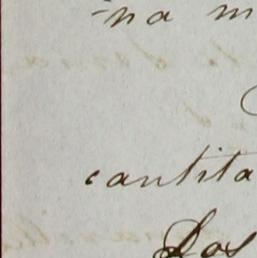 =na m
cantita
Dos